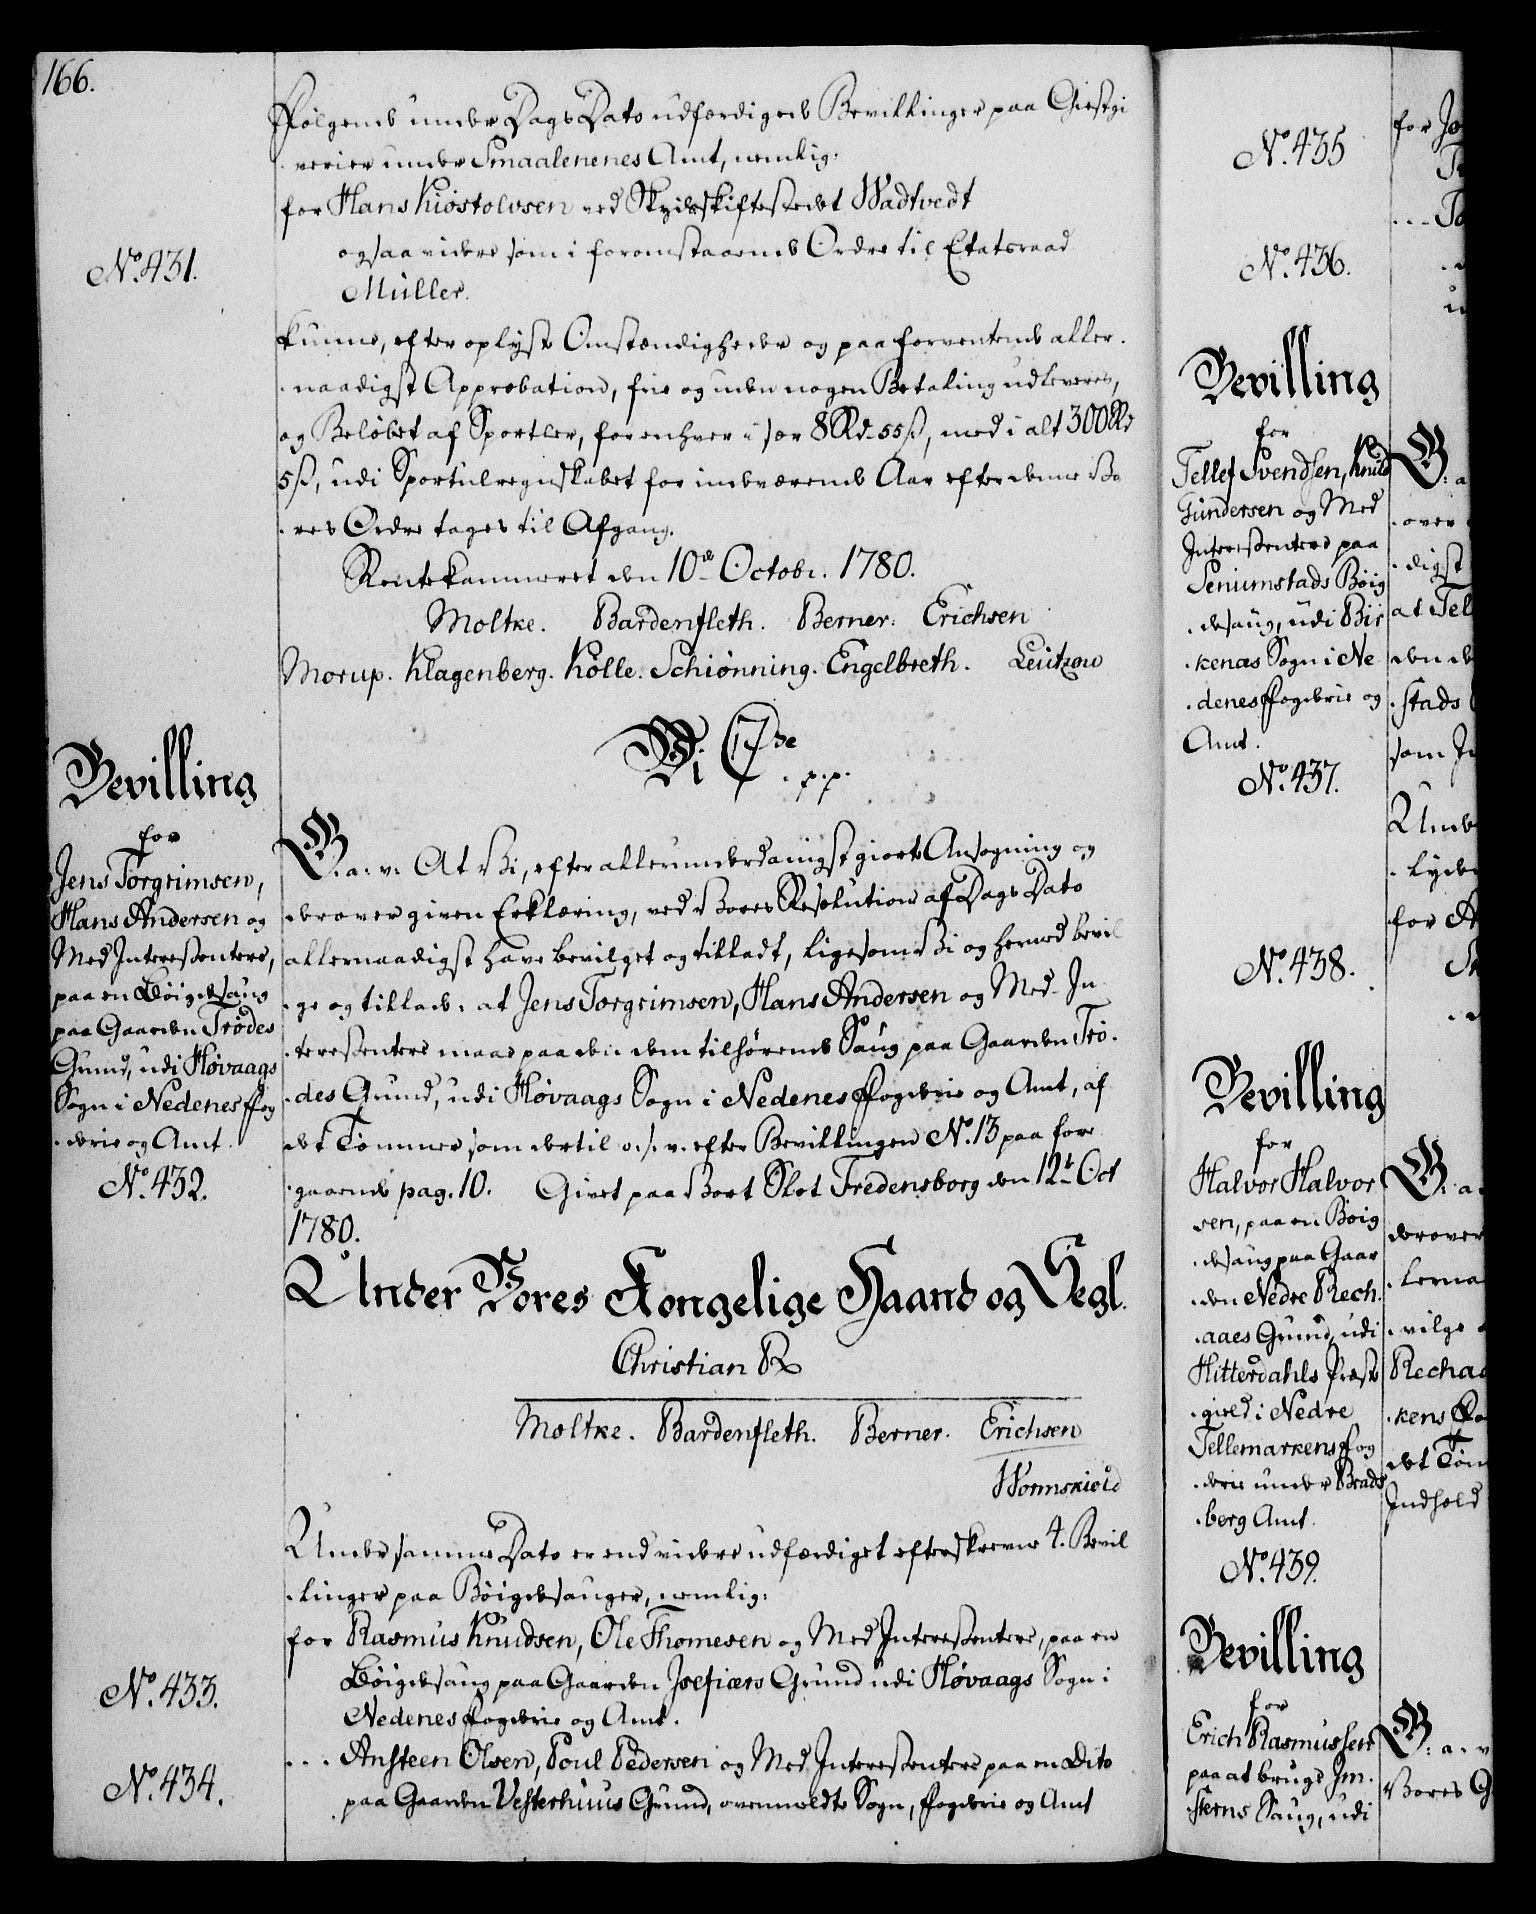 166.
Følgende under Dags Dato udfærdigede Bevillinger paa Giestgi
verier under Smaalenenes Amt, nemlig:
for Hans Kiøstolvsen ved Skydsskiftestedet Wadtvedt
No. 431.
og saa videre som i foromstaaende Ordre til Etatsraad
Müller.
kunne, efter oplyste Omstændigheder og paa forventende aller-
naadigst Approbation, frie og uden nogen Betaling udleveres,
og Beløbet af Sportler, for enhver i sær 8 Rd. 55 ß, med i alt 300 Rd
5 ß, udi Sportulregnskabet for indværende Aar efter denne Vo
res Ordre tages til Afgang.
Rentekammeret den 10de Octobr. 1780.
Moltke. Bardenfleth. Berner. Erichsen
Morup. Klagenberg. Kølle. Schiønning. Engelbreth. Leützow
Vi C 7de
p. p.
Bevilling
for
Jens Torgrimsen,
Hans Andersen og
Med Interessentere,
paa en Bøigdesaug
paa Gaarden Trødes
Grund, udi Høvaags
Sogn i Nedenes Fog
derie og Amt.
No. 432.
G. a. v. At Vi, efter allerunderdanigst giorte Ansøgning og
derover given Erklæring, ved Vores Resolution af Dags Dato
allernaadigst have bevilget og tilladt, ligesom Vi og hermed bevil
ge og tillade, at Jens Torgrimsen, Hans Andersen og Med-In
teressentere maae paa den dem tilhørende Saug paa Gaarden Trø-
des Grund, udi Høvaags Sogn i Nedenes Fogderie og Amt, af
det Tømmer som dertil o. s. v. efter Bevillingen No. 13 paa fore
gaaende pag. 10. Givet paa Vort Slot Fredensborg den 12t Oct
1780.
Under Vores Kongelige Haand og Segl.
Christian R
Moltke. Bardenfleth. Berner. Erichsen
Wormskiold
Under samme Dato er end videre udfærdiget efterskrevne 4. Bevil
linger paa Bøigdesauger, nemlig:
for Rasmus Knudsen, Ole Thomesen og Med Interessentere, paa en
No. 433.
Bøigdesaug paa Gaarden Isefiærs Grund udi Høvaags Sogn i
Nedenes Fogderie og Amt.
... Ansteen Olsen, Poul Pedersen og Med Interessentere paa en Dito
No. 434.
paa Gaarden Vesterhuus Grund, ovenmeldte Sogn, Fogderie og Amt
No. 435
No. 436.
Bevilling
for
Tellef Svendsen, Knud
Gundersen og Med
Interessentere paa
Seniumstads Bøig
desaug, udi Bir
kenæs Sogn i Ne
denes Fogderie og
Amt.
No. 437.
No. 438.
Bevilling
for
Halvor Halvor
sen, paa en Bøig
desaug paa Gaar
den Nedre Rech-
aaes Grund, udi
Hitterdahls Præste
gield i Nedre
Tellemarkens Fog
derie under Brads
berg Amt.
No. 439.
Bevilling
for
Erich Rasmussen
paa at bruge Jm-
sterns Saug, udi
for Jo
... To
G. a
over
digst
at Tell
den de
stads
som In
Unde
lyde
for A
G. a.
derover
lerna
vilge
Rechaa
kens Fo
det Tøm
Indhold
G. a. v
Vores G